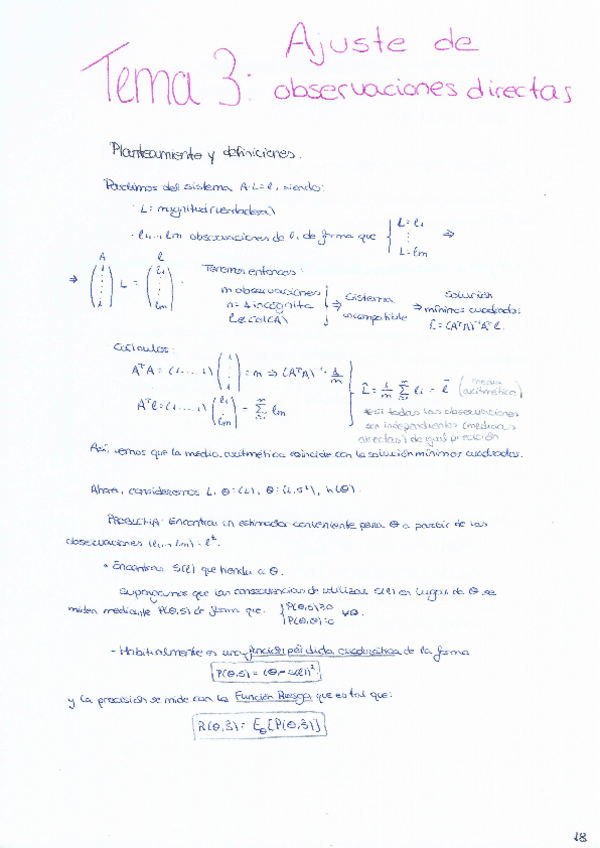 Tema 3: Ajuste de
observaciones directas
Planteamiento y definiciones.
Partimos del sistema A·L=l, siendo:
· L = magnitud (verdadera)
· l1,..., lm observaciones de l, de forma que { L=l1 ⋮ L=lm ⇒
⇒ A (1 ⋮ 1) L = l (l1 ⋮ lm) . Tenemos entonces:
m observaciones
n=1 incógnita
l∉col(A)
⇒ Sistema incompatible ⇒ Solución mínimos cuadrados: L̂=(AᵀA)⁻¹Aᵀl.
Cálculos:
AᵀA = (1.....1) (1 ⋮ 1) = m ⇒ (AᵀA)⁻¹ = 1/m
Aᵀl = (1.....1) (l1 ⋮ lm) = Σ lm
L̂ = 1/m Σ li = l̄ (media aritmética)
*si todas las observaciones
son independientes (medidas
directas) de igual precisión
Así, vemos que la media aritmética coincide con la solución mínimos cuadrados.
Ahora, consideremos L, θ:(L), θ:(L,σ²), h(θ).
PROBLEMA: Encontrar un estimador conveniente para θ a partir de las
observaciones (l1,..., lm)
• Encontrar S(l) que tienda a θ.
Supongamos que las consecuencias de utilizar S(l) en lugar de θ se
miden mediante P(θ,S) de forma que: { P(θ,S)≥0 P(θ,θ)=0 ∀θ.
- Habitualmente es una función pérdida cuadrática de la forma
P(θ,S) = (θ - S(l))²
y la precisión se mide con la Función Riesgo que es tal que:
R(θ,S) = Eθ[P(θ,S)]
18